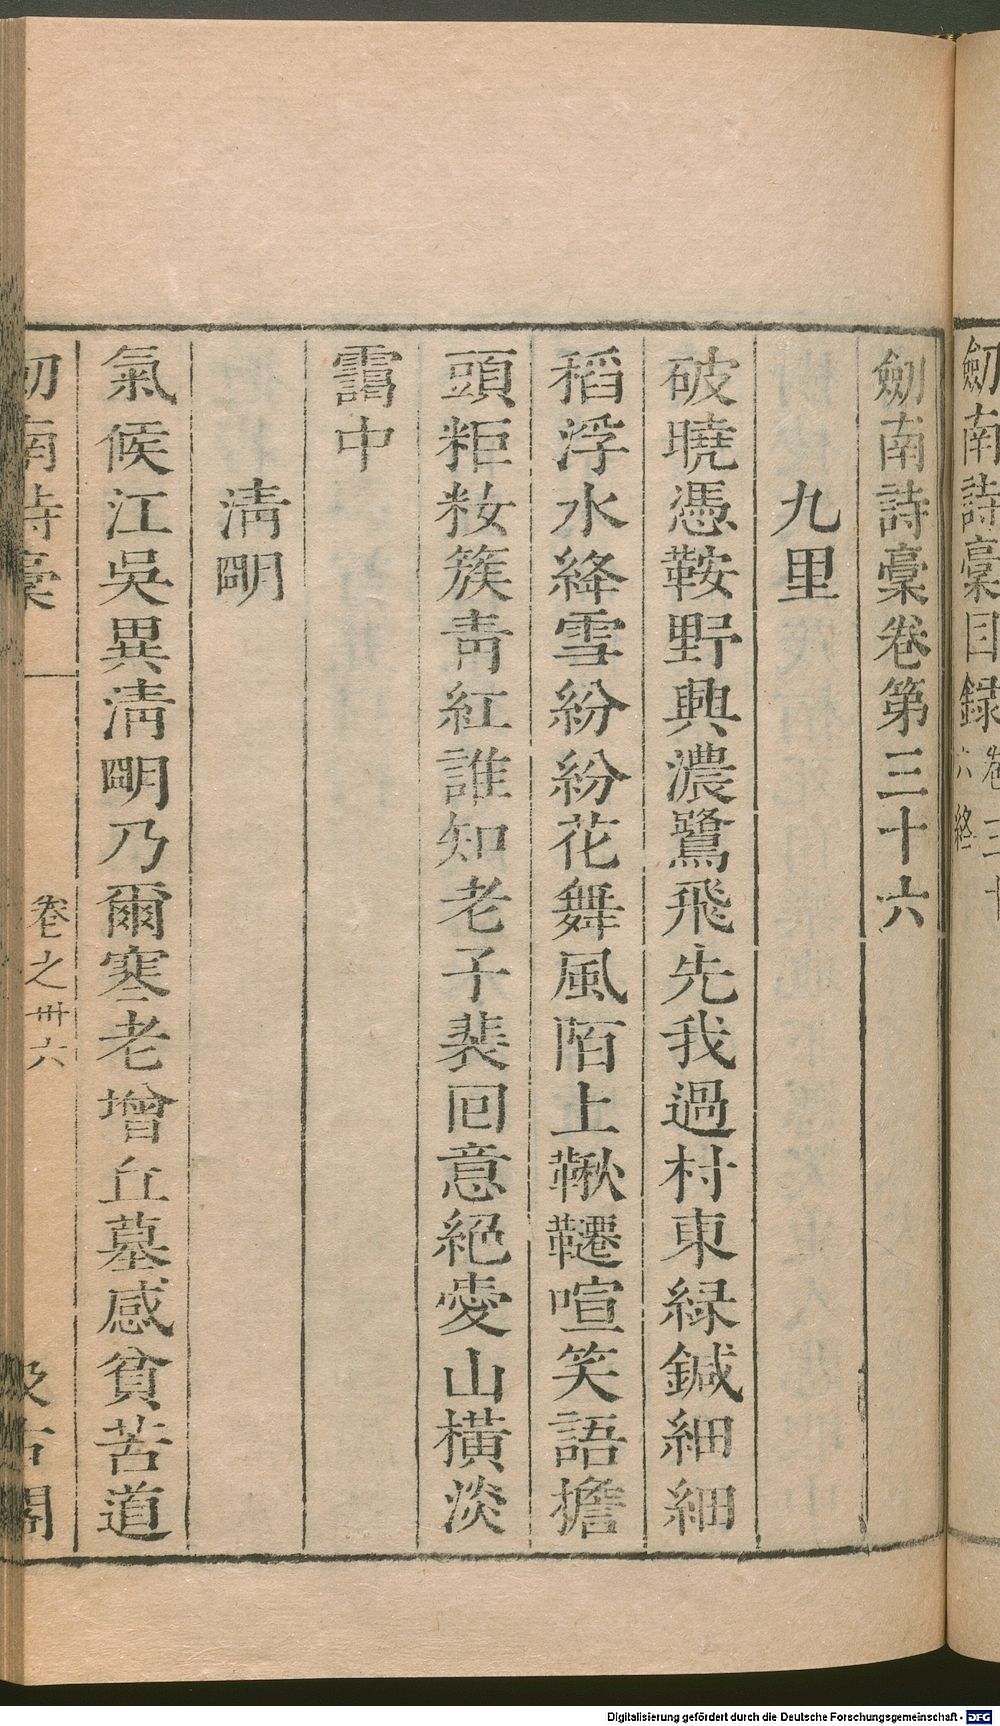 劒南詩稾目録卷三十
六終
劒南詩稾卷第三十六
九里
破曉憑鞍野興濃鷺飛先我過村東緑鍼細細
稻浮水絳雪紛紛花舞風陌上鞦韆喧笑語擔
頭粔籹簇靑紅誰知老子裴回意絕愛山橫淡
靄中
淸朙
氣候江吳異淸朙乃爾寒老增丘墓感貧苦道
劒南詩稾
卷之卅六
汲古閣
Digitalisierung gefördert durch die Deutsche Forschungsgemeinschaft - DFG